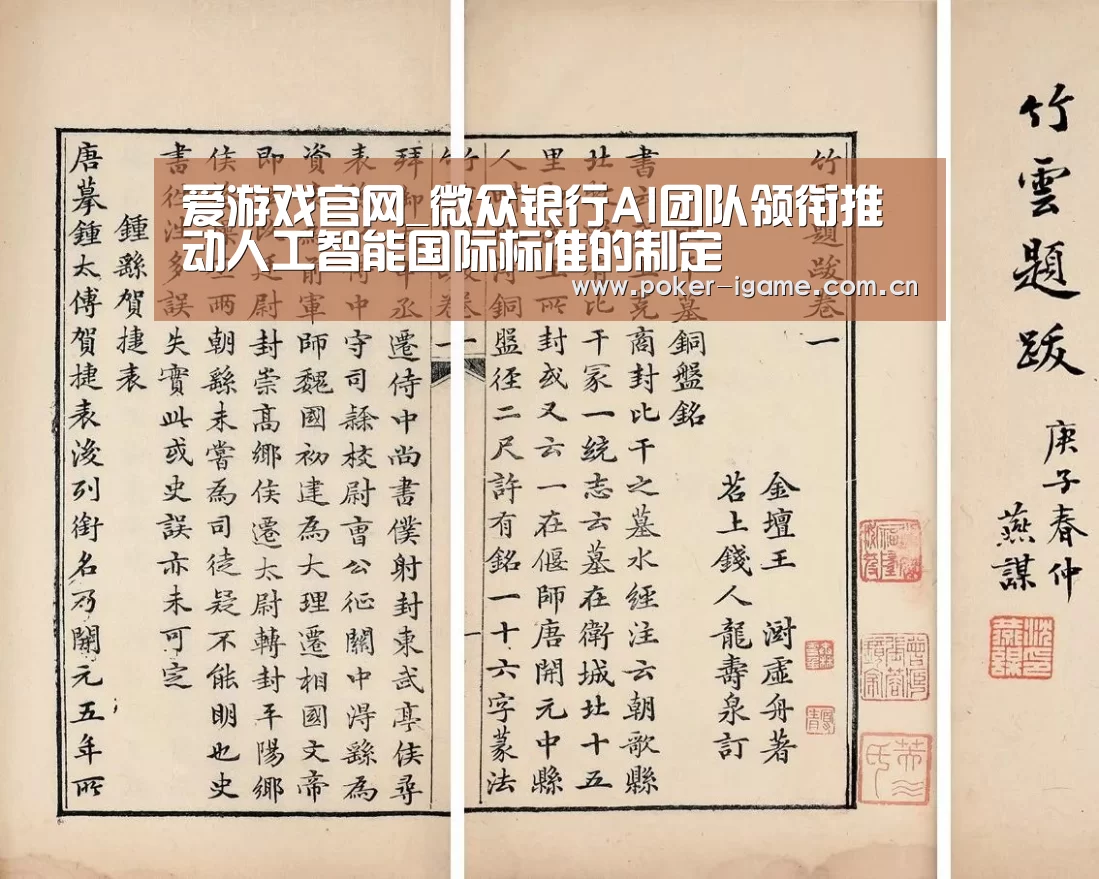 爱游戏官网_微众银行AI团队领衔推
动人工智能国际标准的制定
www.poker-igame.com.cn
竹雲題跋
庚子春仲
燕謀
竹 題跋卷一
金壇王 澍虛舟著
苕上錢人龍壽泉訂
墓銅盤銘
商封比干之墓水經注云朝歌縣
北 比干冢一統志云墓在衛城北十五
里 所封或又云一在偃師唐開元中縣
人 銅盤徑二尺許有銘一十六字篆法
竹 卷一
一
拜 中丞遷侍中尚書僕射封東武亭侯尋
表 侍中守司隸校尉曹公征關中得繇為
資 前軍師魏國初建為大理遷相國文帝
即 廷尉封崇高鄉侯遷太尉轉封平陽鄉
侯 兩朝繇未嘗為司徒疑不能明也史
書 多誤失實此或史誤亦未可定
鍾繇賀捷表
唐摹鍾太傅賀捷表後列銜名乃開元五年所